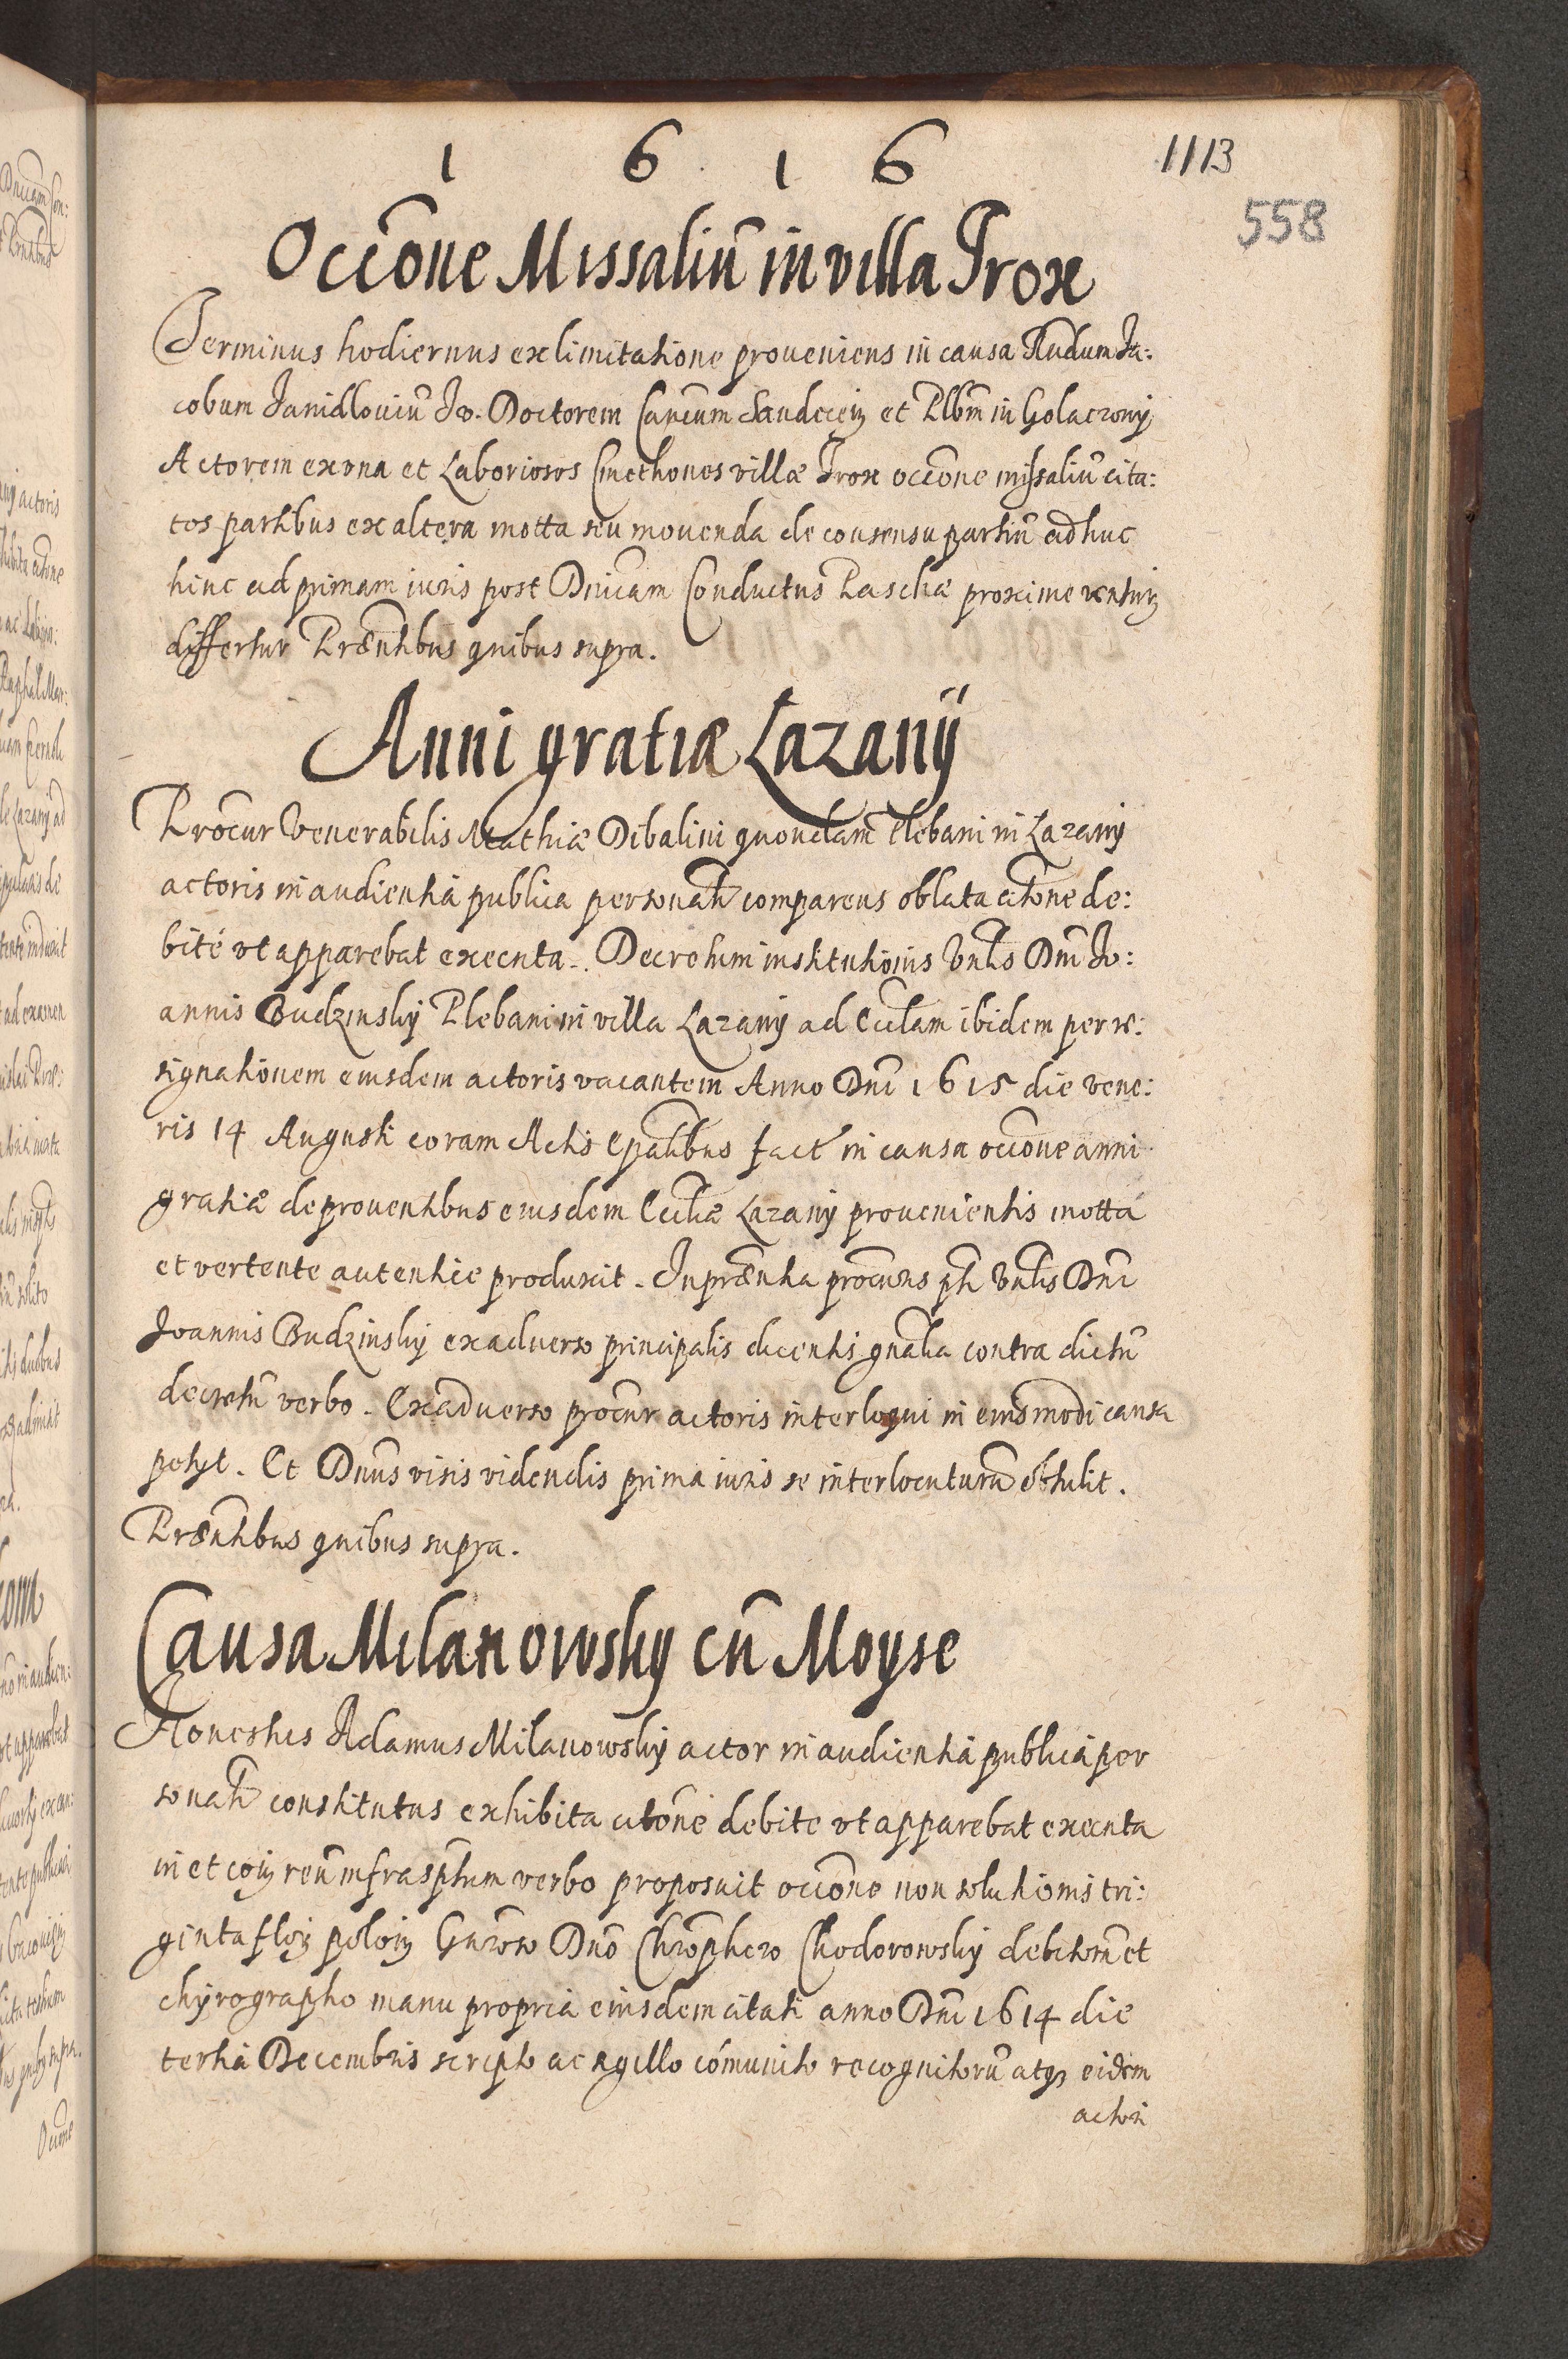 1 6 1 6
1113
558
Occõne Missaliũ in villa Trox
Terminus hodiernus ex limitatione proueniens in causa Rñdum Ja:
cobum Janidlouiũ Jo. Doctorem Cancum Sandecen et Plbm in Golaczowy
Actorem ex vna et Laboriosos Cmethones villæ Trox occõne missaliũ cita:
tos partibus ex altera motta seu mouenda de consensu partiũ adhuc
hinc ad primam iuris post Dnicam Conductus Paschæ proxime ventur
differtur Præntibus quibus supra.
Anni gratiæ Lazany
Procur Venerabilis Mathiæ Dibalini quondam Plebani in Lazany
actoris in audientia publica personatr comparens oblata citone de:
bité vt apparebat executa. Decretum institutionis Vnlis Dni Jo:
annis Budzinsky Plebani in villa Lazany ad Ecclam ibidem per re:
signationem eiusdem actoris vacantem Anno Dni 1615 die vene:
ris 14 Augusti coram Actis Epalibus fact in causa occone anni
gratiæ de prouentibus eiusdem Eccliæ Lazany prouenientis motta
et vertente autentice produxit. In præntia procuris ph Vnlis Dni
Joannis Budzinsky ex aduerso principalis dicentis gnalia contra dictũ
decretũ verbo. Ex aduerso procur actoris interloqui in eiusmodi causa
petyt. Et Dnus visis videndis prima iuris se interlocuturũ obtulit.
Præntibus quibus supra.
Causa Milanowsky cũ Moyse
Honestus Adamus Milanowsky actor in audientia publica per
sonatr constitutus exhibita citone debite vt apparebat execcuta
in et con reũ infrasptum verbo proposuit occone non solutionis tri:
ginta flor polon Gnroso Dno Chrophero Chodorowsky debitorũ et
chyrographo manu propria eiusdem citati anno Dni 1614 die
tertia Decembris scripto ac sigillo cómunito recognitorũ atq eidem
actori